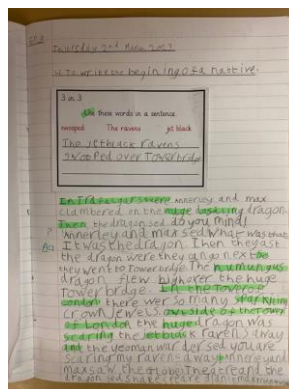 Thursday 2nd March 2023
LI To write the begining of a narrtive.
3 in 3
Use these words in a sentence.
swooped The ravens jet black
The jetblack ravens
swooped over Tower bridge
In Trafalger square Annerley and max
clambered on the huge looking dragon
Then the dragon sed do you mind!
Annerley and max sed what was that
It was the dragon. Then they ast
the dragon were they can go next to
they went to Tower bridge. The humungus
dragon flew high over the huge
Tower bridge. In the Tower of
London there wer so many sparkling
crown jewels. outside of the Tower
of London the huge dragon was
scaring the jet black raven's away
and the yeoman warder sed you are
scaring my ravens away. Annerley and
max saw the globe Theatre and the
dragon sed shakespeare